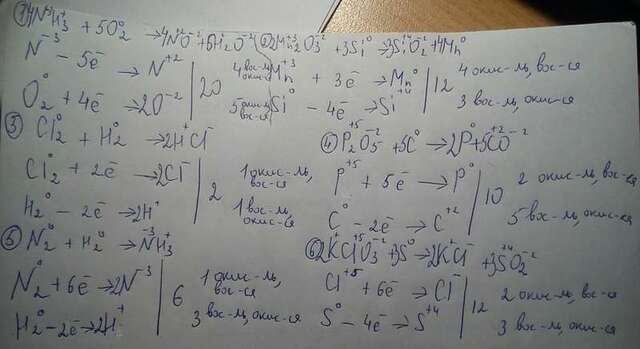 1) 4N⁻³H₃⁺ + 5O₂⁰ → 4N⁺²O⁻² + 6H₂O⁻²
N⁻³ - 5ē → N⁺² | 20 4 вос-ль, окис-ся
O₂⁰ + 4ē → 2O⁻² | 5 окис-ль, вос-ся
2) 2Mn₂⁺³O₃⁻² + 3Si⁰ → 3Si⁺⁴O₂⁻² + 4Mn⁰
Mn⁺³ + 3ē → Mn⁰ | 12 4 окис-ль, вос-ся
Si⁰ - 4ē → Si⁺⁴ | 3 вос-ль, окис-ся
3) Cl₂⁰ + H₂⁰ → 2H⁺Cl⁻
Cl₂⁰ + 2ē → 2Cl⁻ | 2 1 окис-ль, вос-ся
H₂⁰ - 2ē → 2H⁺ | 1 вос-ль, окис-ся
4) P₂⁺⁵O₅⁻² + 5C⁰ → 2P⁰ + 5C⁺²O⁻²
P⁺⁵ + 5ē → P⁰ | 10 2 окис-ль, вос-ся
C⁰ - 2ē → C⁺² | 5 вос-ль, окис-ся
5) N₂⁰ + H₂⁰ → N⁻³H₃⁺
N₂⁰ + 6ē → 2N⁻³ | 6 1 окис-ль, вос-ся
H₂⁰ - 2ē → 2H⁺ | 3 вос-ль, окис-ся
6) 2K⁺Cl⁺⁵O₃⁻² + 3S⁰ → 2K⁺Cl⁻ + 3S⁺⁴O₂⁻²
Cl⁺⁵ + 6ē → Cl⁻ | 12 2 окис-ль, вос-ся
S⁰ - 4ē → S⁺⁴ | 3 вос-ль, окис-ся